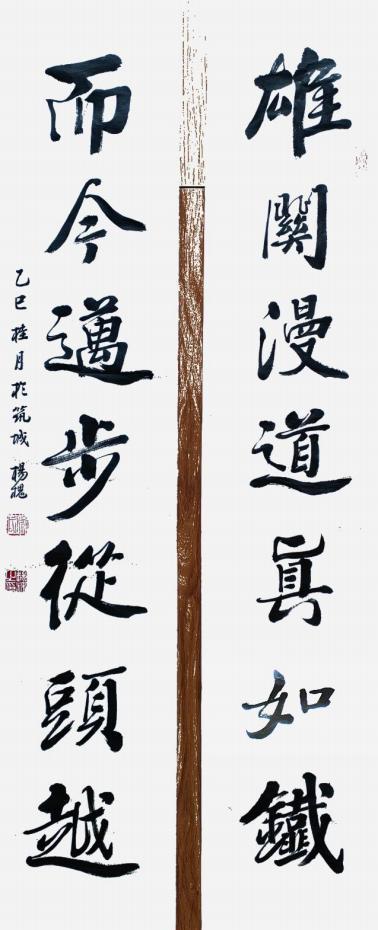 雄關漫道真如鐵
而今邁步從頭越
乙巳桂月於筑城 楊槐